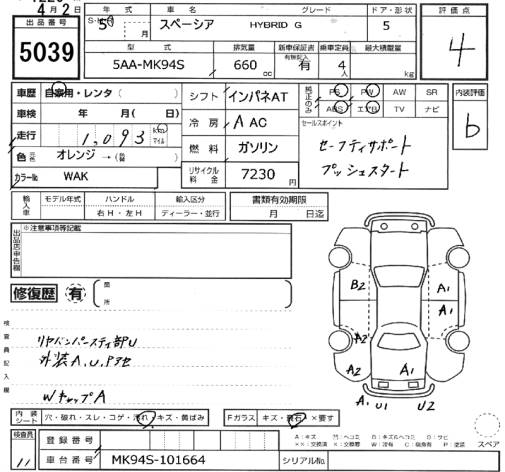 4月2日
出品番号
5039
年式 車名 グレード ドア・形状 評価点
5 月 スペーシア HYBRID G 5 4
型式 排気量 新車保証書 乗車定員 最大積載量
有無記入
5AA-MK94S 660 cc 有 4人 kg
車歴 自家用・レンタ( )
車検 年 月( 日)
走行 1,093 km マイル
色 元色 オレンジ→(色替 )
カラーNo WAK
シフト インパネAT
冷房 AAC
燃料 ガソリン
リサイクル料金 7230円
純正のみ
PS PW AW SR
ABS エアB TV ナビ
セールスポイント
セーフティサポート
プッシュスタート
内装評価
b
輸入車 モデル年式 ハンドル 輸入区分
右H・左H ディーラー・並行
書類有効期限
月 日迄
出品店申告欄
※注意事項等記載
修復歴 有
箇所
検査員記入欄
リヤバンパースティ部U
外装A,U,Pアセ
WキャップA
B2 A1
A1
A2 A2
A2 A1 A1
A1 U1 U2
内装シート 穴・破れ・スレ・コゲ・汚れ・キズ・黄ばみ
Fガラス キズ・飛石・×要す
検査員
11
登録番号
車台番号 MK94S-101664 シリアルNo.
A:キズ B:キズ&ヘコミ
××:交換済 ×:交換要 W:波有 C:腐食有 P:塗装
スペア